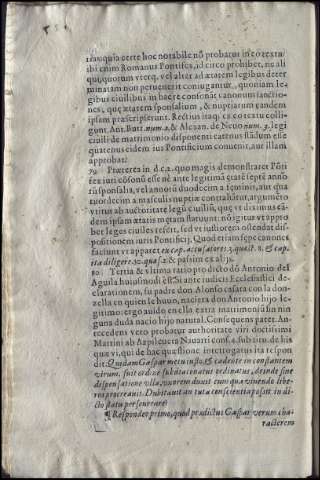 riauquia certe hoc notabile nõ probatur in eo textu:
ibi enim Romanus Pontifex, id circo prohibet, ne ali
qui, quorum vterq; vel alter ad ætatem legibus deter
minatam non peruenerit coniugantur, quoniam le-
gibus ciuilibus in hac re consonãt canonum sanctio-
nes, quæ ætatem sponsalium, & nuptiarum eandem
ipsam præscripserunt. Rectius itaq; ex eo textu colli-
gunt Ant. Butr. num. 2. & Alexan. de Neuo num. 3. legi
ciuili de matrimonio disponenti eatenus standum esse
quatenus eidem ius Pontificium conuenit, aut illam
approbat.
79 Præterea in d. c. 2. quo magis demonstraret Põti
fex iuri cõsonũ esse nè ante legitimã ætatẽ septẽ annō
rũ sponsalia, vel annorũ duodecim à feminis, aut qua
tuordecim à masculis nuptiæ contrahãtur, argumẽto
vtitur ab auctoritate legũ ciuiliũ, quę vt diximus eã-
dem ipsam ætatis metam statuunt. nō igitur vt appro
bet leges ciuiles refert, sed vt iustiorem ostendat dis-
positionem iuris Pontificij. Quod etiam sępe canones
faciunt vt apparet, ex cap. accusatores. 3. quæst. 8. & cap
ita diligere. 32. quæst. 2. & passim ex alijs.
80 Tertia & vltima ratio pro dicto dõ Antonio del
Aguila huiusmodi est: Si ante iudicis Ecclesiastici de-
clarationem, su padre don Alonso casara con la don-
zella en quien le huuo, naciera don Antonio hijo le-
gitimo: ergo auido en ella extra matrimoniũ sin nin
guna duda nacio hijo natural. Consequens patet. An-
tecedens vero probatur authoritate viri doctissimi
Martini ab Azpilcueta Nauarri cons. 4. sub tit. de his
quæ vi, qui de hac quæstione interrogatus ita respon
dit: Quidam Gaspar metu iusto, & cadente in constantem
virum, fuit ordine subdiaconatus ordinatus, deinde sine
dispensatione vlla, vxorem duxit cum qua viuendo libe-
ros procreauit. Dubitatur an tuta conscientia possit in di-
cto statu perseuerare?
¶ Respondeo primo, quod prædictus Gaspar verum cha-
racterem